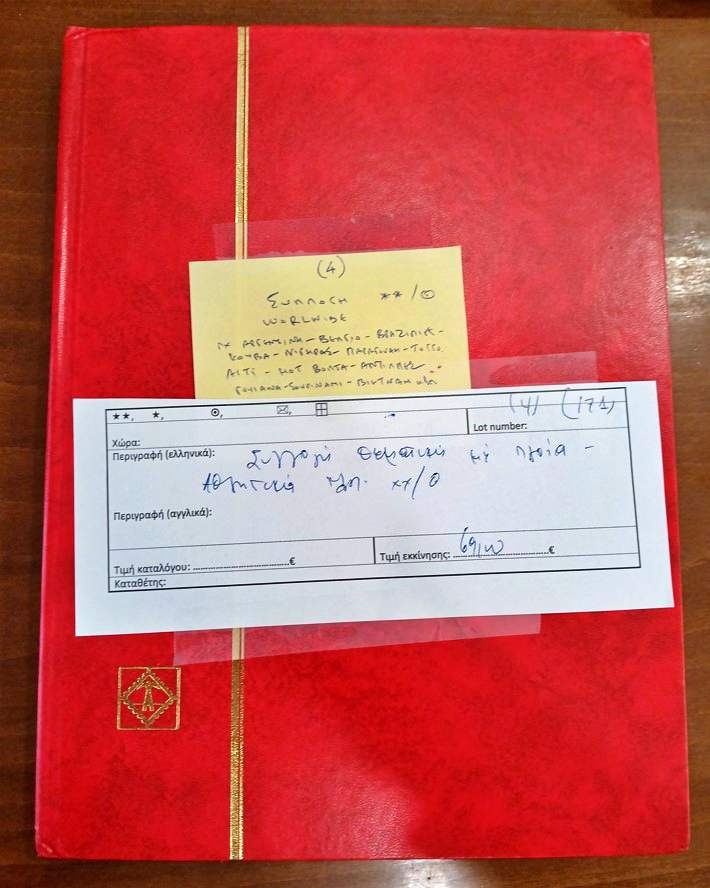 (4)
ΣΥΛΛΟΓΗ **/⊙
WORLWIDE
ΠΧ ΑΡΓΕΝΤΙΝΑ - ΒΕΛΓΙΟ - ΒΡΑΖΙΛΙΑ -
ΚΟΥΒΑ - ΝΙΓΗΡΑΣ - ΠΑΡΑΓΟΥΑΗ - ΤΟΓΓΟ
ΑΙΤΗ - ΒΟΛΤΑ - ΑΝΤΙΛΛΕΣ
ΓΟΥΙΑΝΑ - ΣΟΥΡΙΝΑΜ - ΒΙΕΤΝΑΜ κλπ
★★, ★, ⊙, ✉, ⊞
(4) (171)
Χώρα: Lot number:
Περιγραφή (ελληνικά): Συλλογή θεματική με πλοία -
Αθλητικά **/⊙
Περιγραφή (αγγλικά):
Τιμή καταλόγου: ........................................€ Τιμή εκκίνησης: ........................................€
Καταθέτης: